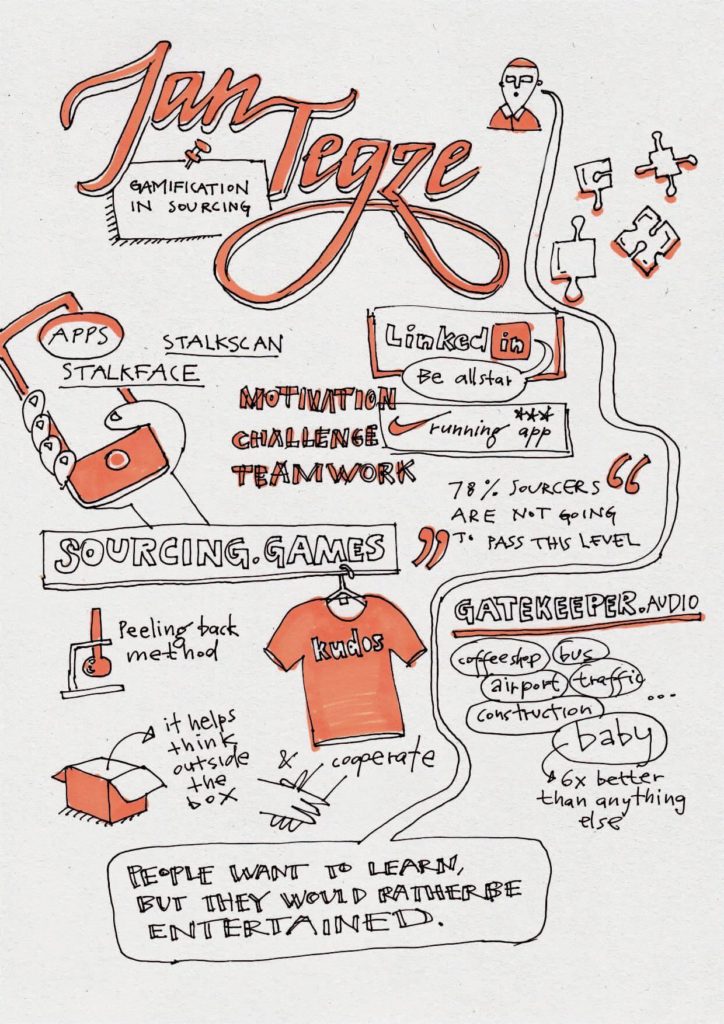 Jan
Tegze
GAMIFICATION
IN SOURCING
APPS
STALKSCAN
STALKFACE
Linked in
Be allstar
running app
MOTIVATION
CHALLENGE
TEAMWORK
“
78% SOURCERS
ARE NOT GOING
TO PASS THIS LEVEL
”
SOURCING.GAMES
kudos
Peeling back
method
GATEKEEPER.AUDIO
coffeeshop
bus
airport
traffic
construction
...
baby
6x better
than anything
else
it helps
think
outside
the
box
&
cooperate
PEOPLE WANT TO LEARN,
BUT THEY WOULD RATHER BE
ENTERTAINED.